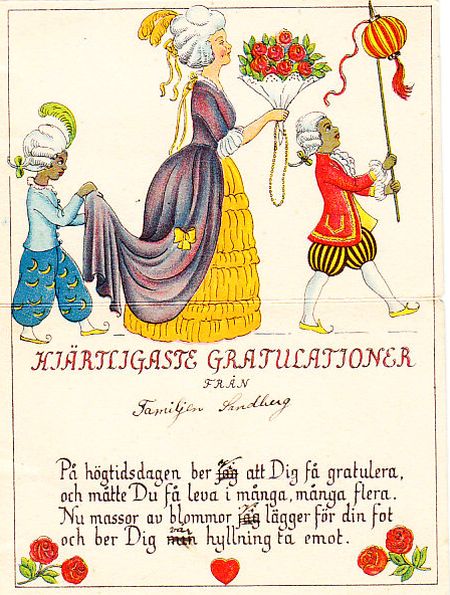 HJÄRTLIGASTE GRATULATIONER
FRÅN
Familjen Sandberg
På högtidsdagen ber vi att Dig få gratulera,
och måtte Du få leva i många, många flera.
Nu massor av blommor vi lägger för din fot
och ber Dig vår hyllning ta emot.